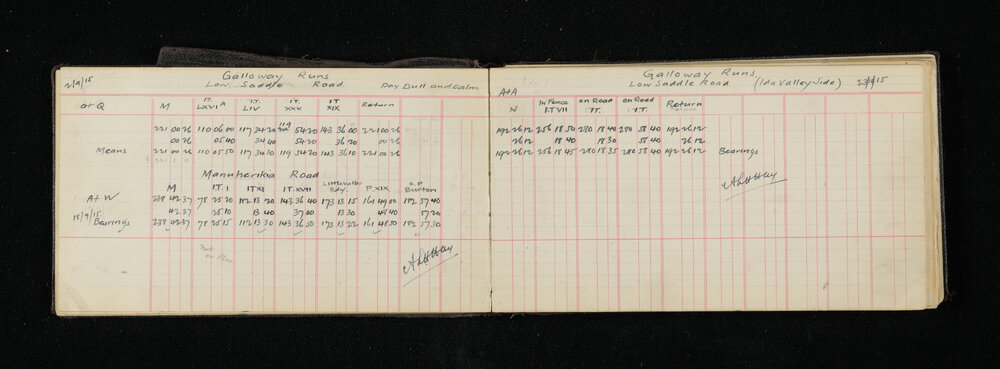 2/9/15 Galloway Runs
Low Saddle Road Day Dull and Calm
At Q M I.T. LXVI A I.T. LIV I.T. XXX IT XIX Return
221 00 26 110 06 00 117 34 20 119 54 20 143 36 00 221 00 26
00 26 05 40 34 40 54 20 36 20 00 26
Means 221 00 26 110 05 50 117 34 30 119 54 20 143 36 10 221 00 26
Manuherikia Road
At W M IT. I IT XI IT. XVII Little Valley Bdy. P. XIX O.P Burton
238 42 37 78 25 20 112 13 20 143 36 40 173 13 15 161 49 00 182 57 40
18/9/15 42 37 25 10 13 40 37 00 13 30 48 40 57 20
Bearings 238 42 37 78 25 15 112 13 30 143 36 50 173 13 22 161 48 50 182 57 30
Not on Plan
Galloway Runs
Low Saddle Road (Ida Valley Side)
At A N In Fence I.T VII on Road I.T. on Road I.T. Return
192 26 12 256 18 50 280 18 40 280 58 40 192 26 12
26 12 18 40 18 30 58 40 26 12
192 26 12 256 18 45 280 18 35 280 58 40 192 26 12 Bearings